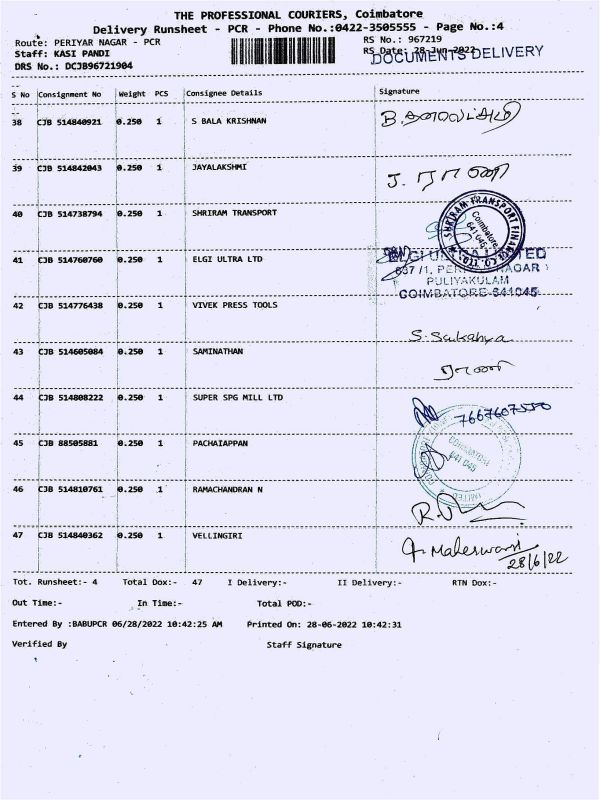 THE PROFESSIONAL COURIERS, Coimbatore
Delivery Runsheet - PCR - Phone No.:0422-3505555 - Page No.:4
Route: PERIYAR NAGAR - PCR
RS No.: 967219
Staff: KASI PANDI
RS Date: 28-Jun-2022
DOCUMENTS DELIVERY
DRS No.: DCJB96721904
S No Consignment No Weight PCS Consignee Details Signature
38 CJB 514840921 0.250 1 S BALA KRISHNAN
39 CJB 514842043 0.250 1 JAYALAKSHMI
40 CJB 514738794 0.250 1 SHRIRAM TRANSPORT
SHRIRAM TRANSPORT FINANCE CO. LTD.
Coimbatore
641 045
41 CJB 514760760 0.250 1 ELGI ULTRA LTD
ELGI ULTRA LIMITED
PULIYAKULAM
COIMBATORE-641045
42 CJB 514776438 0.250 1 VIVEK PRESS TOOLS
43 CJB 514605084 0.250 1 SAMINATHAN
44 CJB 514808222 0.250 1 SUPER SPG MILL LTD
45 CJB 88505881 0.250 1 PACHAIAPPAN
COIMBATORE
641 045
LIMITED
46 CJB 514810761 0.250 1 RAMACHANDRAN N
47 CJB 514840362 0.250 1 VELLINGIRI
Maheswari
28/6/22
Tot. Runsheet:- 4 Total Dox:- 47 I Delivery:- II Delivery:- RTN Dox:-
Out Time:- In Time:- Total POD:-
Entered By :BABUPCR 06/28/2022 10:42:25 AM Printed On: 28-06-2022 10:42:31
Verified By Staff Signature